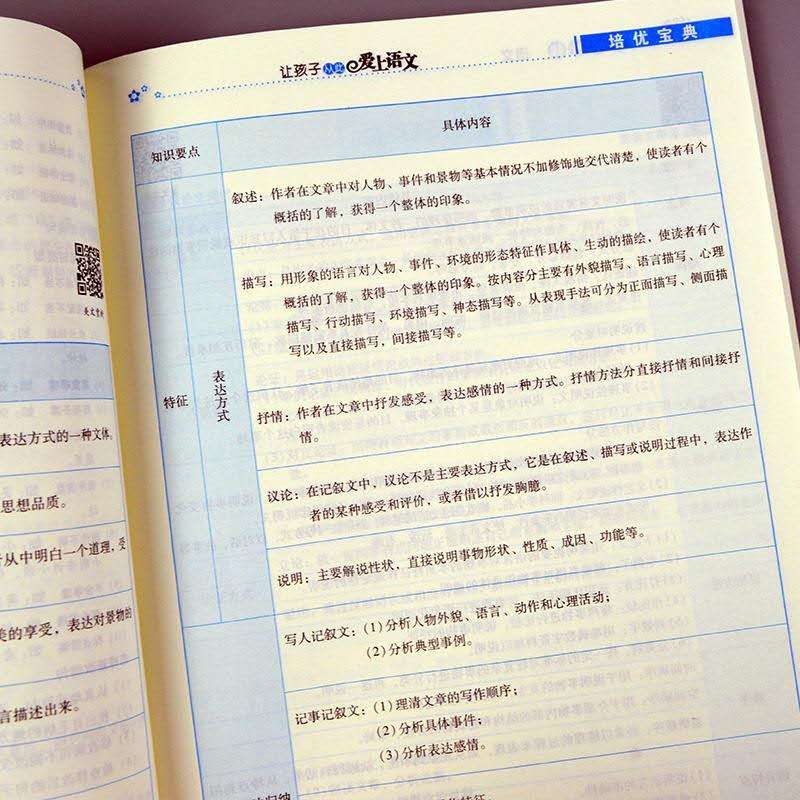 美文赏析
表达方式的一种文体。
思想品质。
从中明白一个道理，受
美的享受，表达对景物的
言描述出来。
让孩子从此爱上语文
培优宝典
知识要点
具体内容
特征
表达方式
叙述：作者在文章中对人物、事件和景物等基本情况不加修饰地交代清楚，使读者有个
概括的了解，获得一个整体的印象。
描写：用形象的语言对人物、事件、环境的形态特征作具体、生动的描绘，使读者有个
概括的了解，获得一个整体的印象。按内容分主要有外貌描写、语言描写、心理
描写、行动描写、环境描写、神态描写等。从表现手法可分为正面描写、侧面描
写以及直接描写，间接描写等。
抒情：作者在文章中抒发感受，表达感情的一种方式。抒情方法分直接抒情和间接抒
情。
议论：在记叙文中，议论不是主要表达方式，它是在叙述、描写或说明过程中，表达作
者的某种感受和评价，或者借以抒发胸臆。
说明：主要解说性状，直接说明事物形状、性质、成因、功能等。
写人记叙文：(1)分析人物外貌、语言、动作和心理活动；
(2)分析典型事例。
记事记叙文：(1)理清文章的写作顺序；
(2)分析具体事件；
(3)分析表达感情。
归纳
特征。